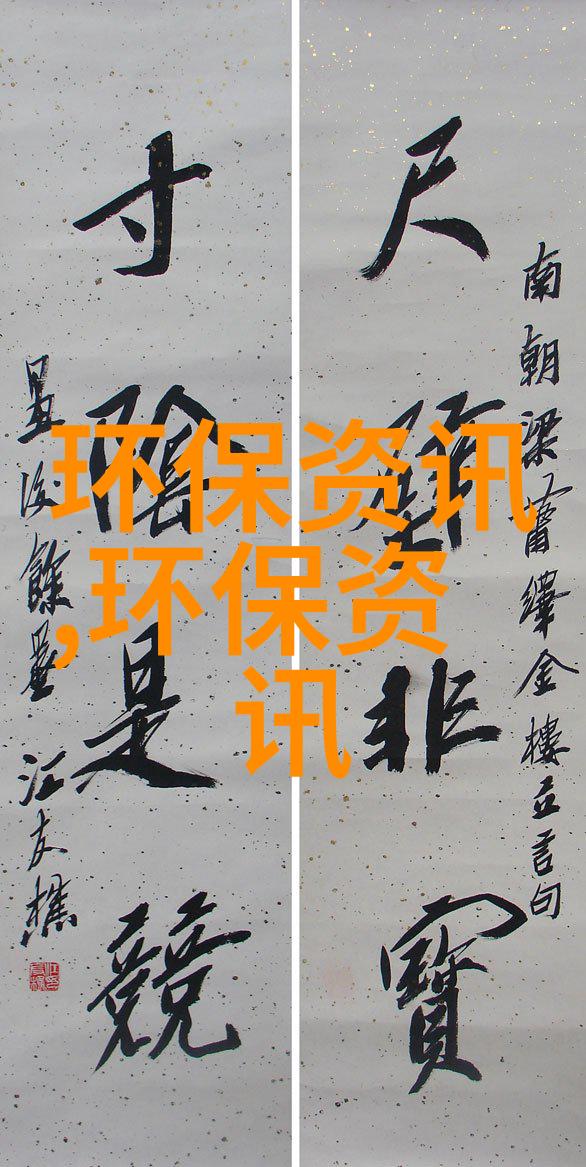 南朝梁蕭繹金樓立言句
尺璧非寶
寸陰是競
江友樵
环保资讯
,环保资
讯